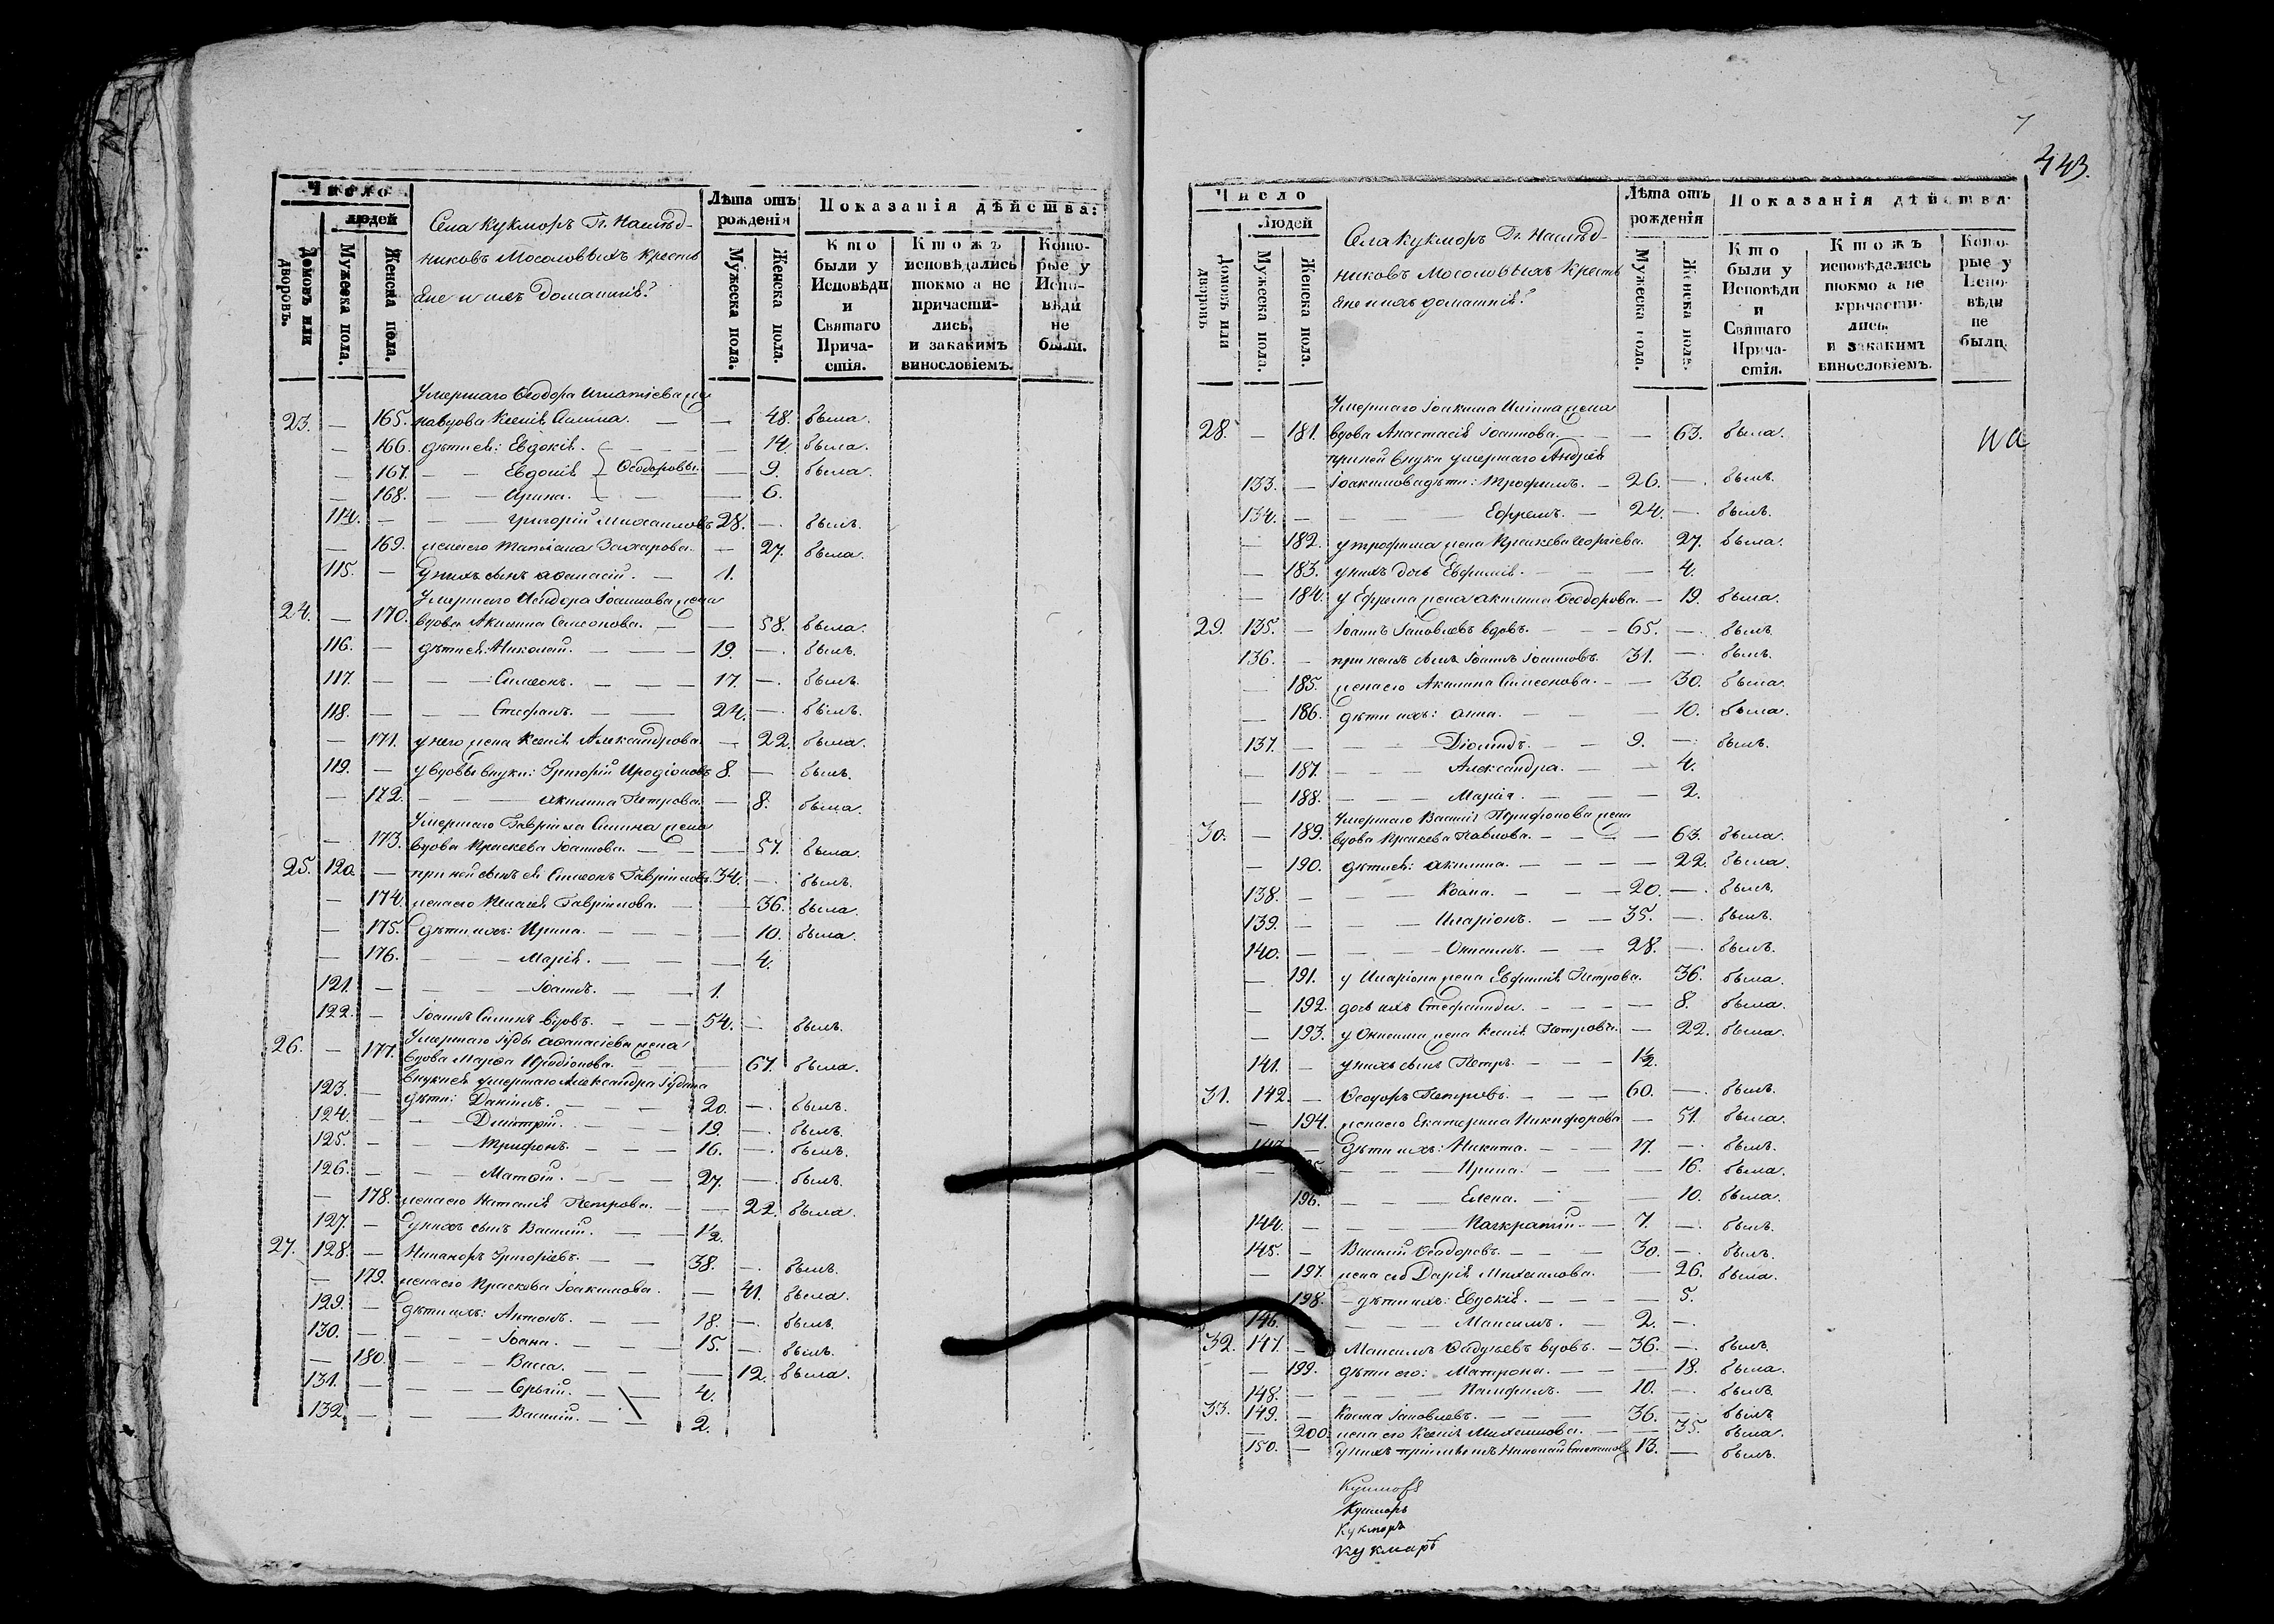 Число
людей
Домовъ или дворовъ.
Мужеска пола.
Женска пола.
Села Кукморъ Гг. Наслѣд-
никовъ Мосоловыхъ Кресть
яне и ихъ домашніе:
Лѣта отъ рожденія
Мужеска пола.
Женска пола.
Показанія дѣйства:
Кто были у Исповѣди и Святаго Причастія.
Ктожъ исповѣдались токмо а не причастились, и закакимъ винословіемъ.
Которые у Исповѣди не были.
Умершаго Ѳеодора Игнатіева же
23. — 165. на вдова Ксенія — — 48. была.
— 166. дѣти ея: Евдокія. — 14. была.
— 167. — Евдокія Ѳеодоровы. — 9. была.
— 168. — Ирина. — 6.
114. — — Григорій Михайловъ 28. —. былъ.
— 169. жена его Татіана Захарова. — 27. была.
115. — у нихъ сынъ Аѳанасій. — 1.
Умершаго Исидора Іоаннова жена
24. — 170. вдова Акилина Симеонова. — — 58. была.
116. — дѣти ея: Николай. — 19. —. былъ.
117. — — Симеонъ. — 17. —. былъ.
118. — — Стефанъ. — 24. —. былъ.
— 171. у него жена Ксенія Александрова. — 22. была.
119. — у вдовы внуки: Григорій Иродіоновъ 8. — былъ.
— 172. — Акилина Петрова. — 8. была.
Умершаго Гавріила жена
— 173. вдова Праскева Іоаннова. — — 57. была.
25. 120. — при ней сынъ ея Симеонъ Гавріиловъ. 34. —. былъ.
— 174. жена его Гавріилова. — 36. была.
— 175. дѣти ихъ: Ирина. — 10. была.
— 176. — Марія. — 4.
121. — — Іоаннъ. — 1.
122. — Іоаннъ вдовъ. — 54. — былъ.
Умершаго Іуды Аѳанасіева жена
26. — 177. вдова Марѳа Иродіонова. — 67. была.
внуки ея умершаго Александра Іудина
123. — дѣти: Даніилъ. — 20. —. былъ.
124. — — Димитрій. — 19. —. былъ.
125. — — Трифонъ. — 16. —. былъ.
126. — — Матѳій. — 27. —. былъ.
— 178. жена его Наталія Петрова. — 22. была.
127. — у нихъ сынъ Василій. — 1/2.
27. 128. — Никаноръ Григорьевъ. — 38. —. былъ.
— 179. жена его Праскева Іоакимова. — 41. была.
129. — дѣти ихъ: Антонъ. — 18. —. былъ.
130. — — Іоанъ. — 15. —. былъ.
— 180. — Васса. — 12. была.
131. — — Сергій. — 4.
132. — — Василій. — 2.
7
443.
Число
Людей
Домовъ или дворовъ
Мужеска пола.
Женска пола.
Села Кукморъ Гг. Наслѣд-
никовъ Мосоловыхъ Кресть
яне и ихъ домашніе:
Лѣта отъ рожденія
Мужеска пола.
Женска пола.
Показанія дѣйства
Кто были у Исповѣди и Святаго Причастія.
Ктожъ исповѣдались токмо а не причастились, и закакимъ винословіемъ.
Которые у Исповѣди не были
Умершаго Іоакима Ильина жена
28. — 181. вдова Анастасія Іоаннова. — 63. была.
при ней внуки умершаго Андрея
133. — Іоакимова дѣти: Трофимъ. — 26. —. былъ.
134. — — Ефремъ. — 24. —. былъ.
— 182. у Трофима жена Праскева Георгіева. 27. была.
— 183. у нихъ дочь Евфимія. — 4.
— 184. у Ефрема жена Акилина Ѳеодорова. — 19. была.
29. 135. — Іоаннъ Іаковлевъ вдовъ. — 65. —. былъ.
136. — при немъ сынъ Іоаннъ Іоанновъ. 31. —. былъ.
— 185. жена его Акилина Симеонова. — 30. была.
— 186. дѣти ихъ: Анна. — 10. была.
137. — — Діомидъ. — 9. —. былъ.
— 187. — Александра. — 4.
— 188. — Марія. — 2.
Умершаго Василія Трифонова жена
30. — 189. вдова Праскева Павлова. — 63. была.
— 190. дѣти ея: Акилина. — 22. была.
138. — — Косма. — 20. —. былъ.
139. — — Иларіонъ. — 35. —. былъ.
140. — — Онисимъ. — 28. —. былъ.
— 191. у Иларіона жена Евфимія Петрова. 36. была.
— 192. дочь ихъ Стефанида. — 8. была.
— 193. у Онисима жена Ксенія Петрова. — 22. была.
141. — у нихъ сынъ Петръ. — 1/2.
31. 142. — Ѳеодоръ Петровъ. — 60. —. былъ.
— 194. жена его Екатерина Никифорова — 51. была.
— дѣти ихъ: Никита. — 17. —. былъ.
— Ирина. — 16. была.
196. — Елена. — 10. была.
144. — — Панкратій. — 7. —. былъ.
145. — Василій Ѳеодоровъ. — 30. —. былъ.
— 197. жена его Дарія Михаилова. — 26. была.
198. — дѣти ихъ: Евдокія. — 5.
146. — Максимъ. — 2. —.
32. 147. — Максимъ вдовъ. — 36. —. былъ.
— 199. дѣти его: Матрона. — 18. была.
148. — — Памфилъ. — 10. —. былъ.
33. 149. — Косма Іаковлевъ. — 36. —. былъ
— 200. жена его Ксенія Михаилова. — 35. была.
150. — у нихъ Николай 13. — былъ.
Кукморъ
Кукморъ
Кукморъ
Кукморъ